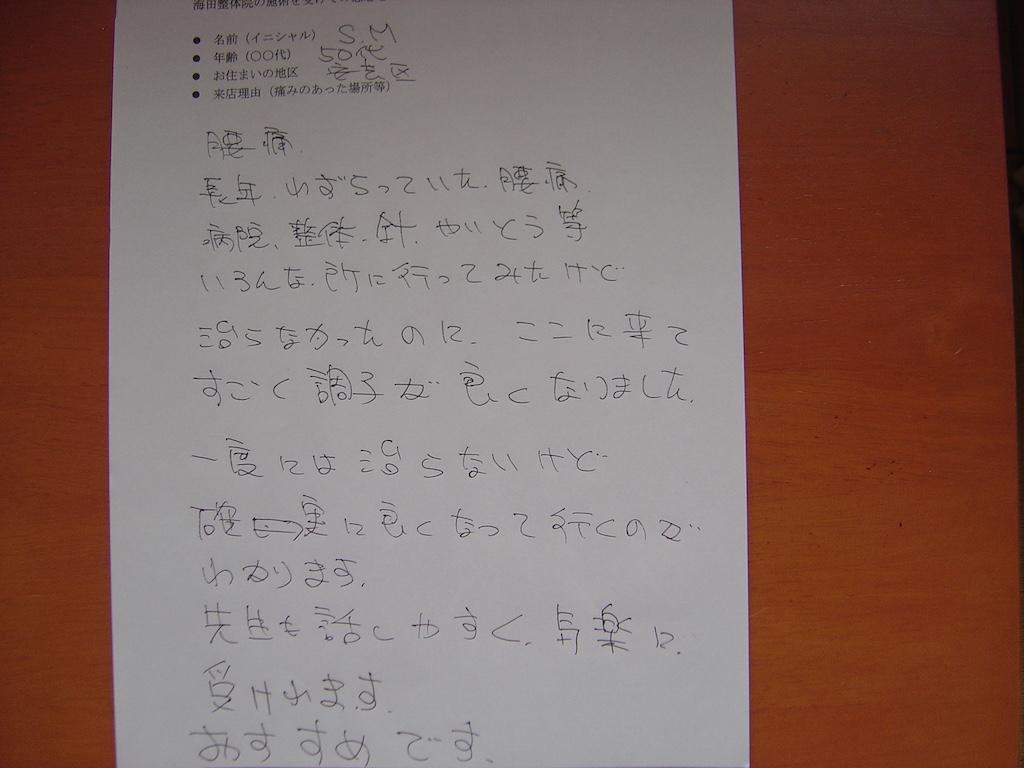 海田整体院の施術を受けての
● 名前(イニシャル) S.M
● 年齢(○○代) 50代
● お住まいの地区 安芸区
● 来店理由(痛みのあった場所等)
腰痛
長年、わずらっていた、腰痛、
病院、整体、針、やいとう等
いろんな、所に行ってみたけど
治らなかったのに、ここに来て
すごく調子が良くなりました。
一度には治らないけど
確実に良くなって行くのが
わかります。
先生も話しやすく、気楽に、
受けれます。
おすすめです。